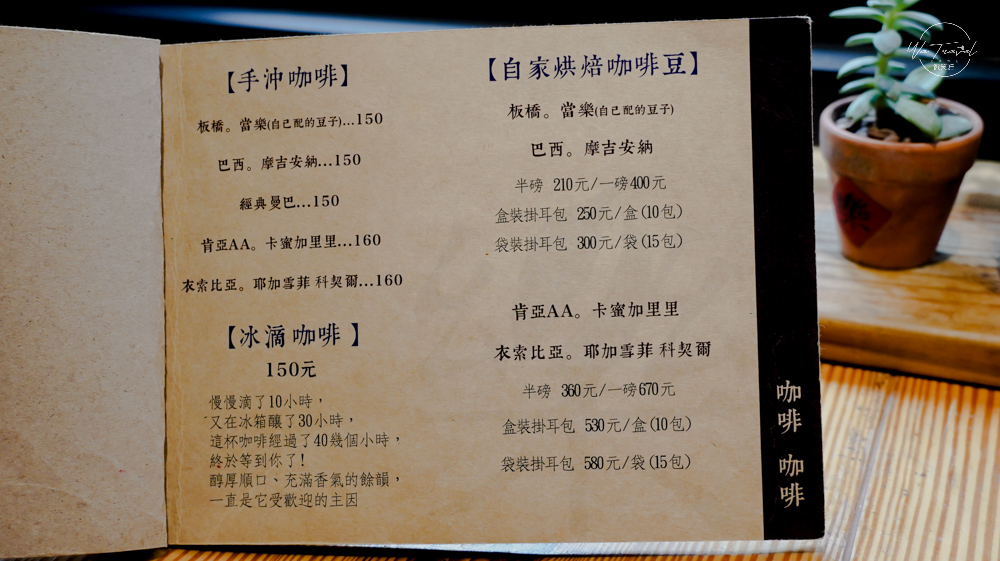 【手沖咖啡】
板橋。當樂(自己配的豆子)...150
巴西。摩吉安納...150
經典曼巴...150
肯亞AA。卡蜜加里里...160
衣索比亞。耶加雪菲 科契爾...160
【冰滴咖啡】
150元
慢慢滴了10小時，
又在冰箱釀了30小時，
這杯咖啡經過了40幾個小時，
終於等到你了!
醇厚順口、充滿香氣的餘韻，
一直是它受歡迎的主因
【自家烘焙咖啡豆】
板橋。當樂(自己配的豆子)
巴西。摩吉安納
半磅 210元/一磅400元
盒裝掛耳包 250元/盒(10包)
袋裝掛耳包 300元/袋(15包)
肯亞AA。卡蜜加里里
衣索比亞。耶加雪菲 科契爾
半磅 360元/一磅670元
盒裝掛耳包 530元/盒(10包)
袋裝掛耳包 580元/袋(15包)
咖啡 咖啡